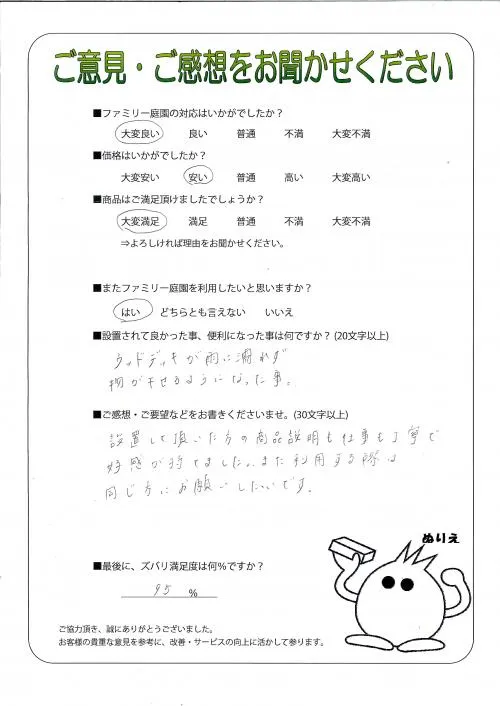 ご意見・ご感想をお聞かせください
■ファミリー庭園の対応はいかがでしたか？
大変良い 良い 普通 不満 大変不満
■価格はいかがでしたか？
大変安い 安い 普通 高い 大変高い
■商品はご満足頂けましたでしょうか？
大変満足 満足 普通 不満 大変不満
⇒よろしければ理由をお聞かせください。
■またファミリー庭園を利用したいと思いますか？
はい どちらとも言えない いいえ
■設置されて良かった事、便利になった事は何ですか？(20文字以上)
ウッドデッキが雨に濡れず
物が干せるようになった事。
■ご感想・ご要望などをお書きくださいませ。(30文字以上)
設置して頂いた方の商品説明も仕事も丁寧で
好感が持てました。また利用する際は
同じ方にお願いしたいです。
ぬりえ
■最後に、ズバリ満足度は何％ですか？
95 %
ご協力頂き、誠にありがとうございました。
お客様の貴重な意見を参考に、改善・サービスの向上に活かして参ります。